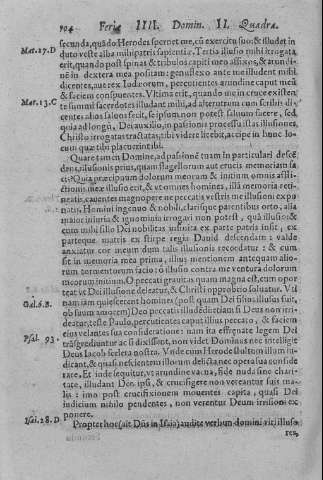 704 Feria IIII. Domin. II. Quadra.
Mat. 27. D
secunda, quãdo Herodes spernet me, cũ exercitu suo: & illudet in
duto veste alba mihi patris sapientiæ. Tertia illusio mihi irrogata
erit, quando post spinas & tribulos capiti meo affixos, & arundi-
nẽ in dextera mea positam: genu flexo ante me illudent mihi
dicentes, aue rex Iudæorum, percutient arundine caput meũ
Mat. 23. C
& faciem conspuentes. Vltima erit, quando me in cruce existen
te summi sacerdotes illudant mihi, ad alterutrum cum scribis di-
centes alios saluos fecit, se ipsum non potest saluum facere, sed
quia ad longũ, Dei auxilio, in passionis processu istas illusiones,
Christo irrogatas tractastis, tibi videre licebit, accipe in hunc lo-
cum quæ tibi placuerint ibi.
Quare tamen Domine, ad passionẽ tuam in particulari descẽ
dens, illusionis prius, quam flagellorum aut crucis memoriam fa
cis? Quia præcipuum dolorum meorum & intimum omnis afflic-
tionis meæ illusio erit, & vt omnes homines, illã memoria reti-
neatis, cauentes magnopere ne peccatis vestris me illusum expo
natis. Homini ingenuo & nobili, clarisque parentibus orto, alla
maior iniuria & ignominia irrogari non potest, quã illusio: &
cum mihi filio Dei nobilitas infinita ex parte patris insit, ex
parteque matris ex stirpe regia Dauid descendam: valde
anxiatur cor meum dum talis illusionis recordatur: & cum
sit in memoria mea prima, illius mentionem antequam alio-
rum tormentorum facio: ò illusio contra me ventura dolorum
meorum intimus. O peccati grauitas quam magna es, cum opor
teat vt Dei illusione deleatur, & Christi opprobrio soluatur. Vti
Gal. 6. B.
nam iam quiescerent homines (post quam Dei filio, illusus fuit,
ob suum amorem) Deo peccatis illudedi etiam si Deus non irri-
deatur, teste Paulo, percutientes caput illius peccato, & faciem
eius velantes sua consideratione: nam ita effrænate legem Dei
Psal. 93.
trãsgrediuntur ac si dixissent, non videt Dominus nec intelligit
Deus Iacob scelera nostra. Vnde cum Herode stultum illum iu-
dicant, & quasi nescientem illorum delicta nec opera sua conside
rare. Et inde sequitur, vt arundine vana, fide nuda sine chari-
tate, illudant Deo ipsi, & crucifigere non vereantur suis ma-
lis: imo post crucifixionem mouentes capita, quasi Dei
iudicium nihili pendentes, non verentur Deum irrisioni ex
ponere.
Isai. 28. D
Propter hoc (ait Dñs in Isaia) audite verbum domini viri illuso
res,